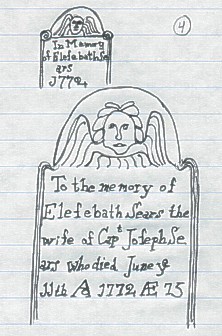 4
In Memory
of Eleſebath Se
ars
1772
To the memory of
Eleſebath Sears the
wife of Capt Joſeph Se
ars who died June ye
11th A 1772 Æ 75